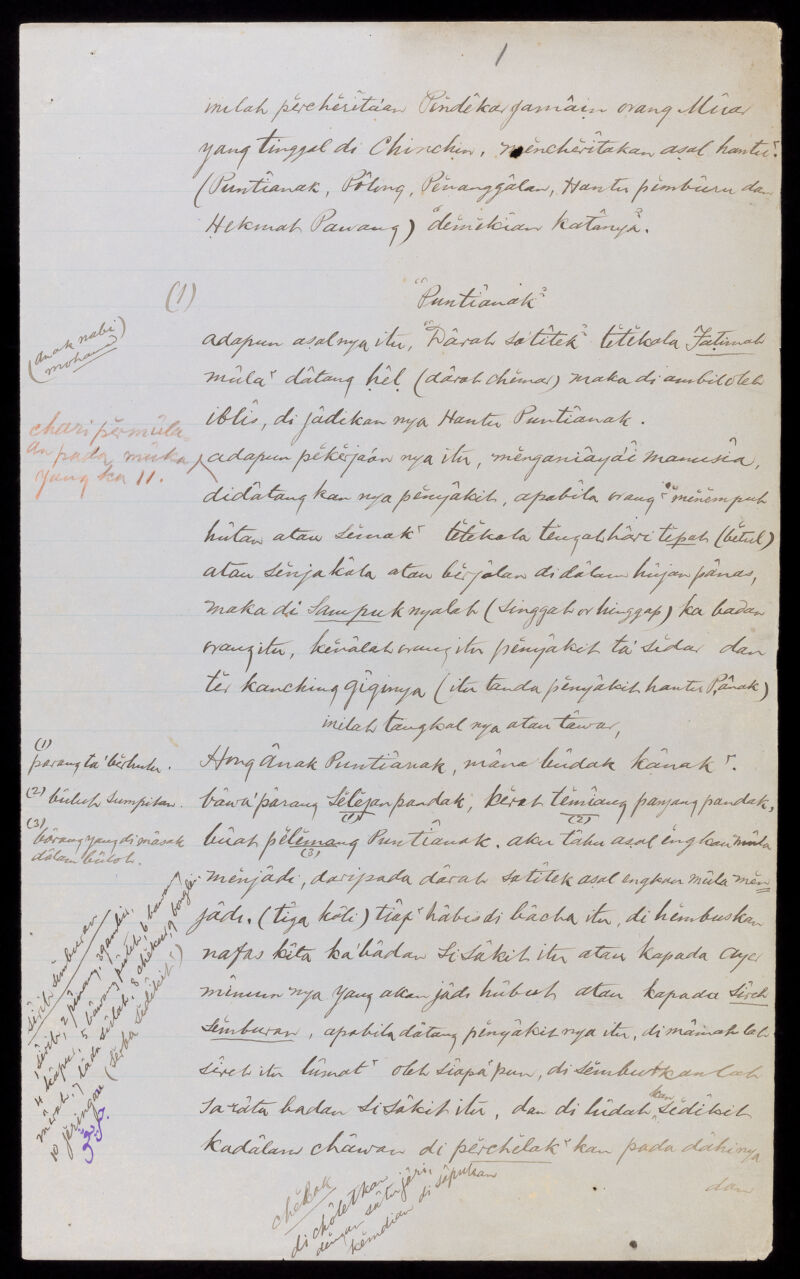 1
inilah pĕrchĕrîtáan Pindêkar Jamâin orang Mûar
yang tinggal di Chinchin, mĕnchĕrîtakan asal hantu².
(Puntîanak, Pôlong, Pĕnanggâlan, Hantu pĕmbûru dan
Hekmat Pawang) "dĕmĕkîan katânya".
(1)
"Puntîanak"
(anak nabi
mohamed)
adapun asalnya itu, "Dârah satîtek" tĕtĕkala Fatimah
mûla² dâtang hêl (dârah chĕmar) maka di ambil oleh
iblîs, di jâdikan nya Hantu Puntîanak.
chari pĕrmûla-
an pada muka
yang ka 11.
adapun pĕkĕrjáan nya itu, mĕnganiâyâ'i manusîa,
didâtangkan nya pĕnyâkit, apabîla orang² mĕnĕmpuh
hûtan atau sĕmak² tĕtĕkala tĕngah hâri tĕpat (bĕtul)
atau sĕnja kâla atau bĕrjâlan didâlam hûjan pânas,
maka di sampuk nyalah (singgah or hinggap) ka badan
orang itu, kĕnâlah orang itu pĕnyâkit ta' sĕdar dan
tĕr kanching gîginya (itu tanda pĕnyâkit hantu P,ânak)
inilah tangkal nya atau tâwar,
(1)
parang ta' bĕrhulu.
Hong ânak Puntîanak, mâna bûdak kânak².
(2) bûluh sumpitan.
bâwa' pârang sĕlĕjan pandak, kĕrat tĕmîang panjang pandak,
(1) (2)
(3)
bârang yang di mâsak
dâlam bûloh.
bûat pĕlĕmang Puntîanak. aku tâhu asal ĕngkau mûla
(3)
mĕnjâdi, daripada dârah satîtek asal engkau mûla mĕn
jâdi. (tiga kâli) tîap² hâbis di bâcha itu, di hĕmbuskan
nafas kîta ka'bâdan si sâkit itu atau kapada ayer
mînum nya yang akan jâdi hûbat atau kapada sîreh
sĕmburan, apabîla dâtang pĕnyâkit nya itu, di mâmah lah
sîreh itu lûmat² oleh sîapâ pun, di sĕmburkan lah
sa râta badan si sâkit itu, dan di lûdah kan sĕdîkit
kadâlam châwan di pĕrchĕlak² kan pada dâhinya
dan
sîrih sĕmburan
1 sîrih, 2 pînang, 3 gambir,
4 kâpur, 5 bâwang pûteh, 6 bawang
mêrah, 7 lâda sûlah, 8 chĕkur, 9 bonglai,
10 jĕringau (sĕrba sĕdîkit²)
chĕlak
di chôletkan
dĕngan sâtu jâri,
kĕmdian di sâpukan